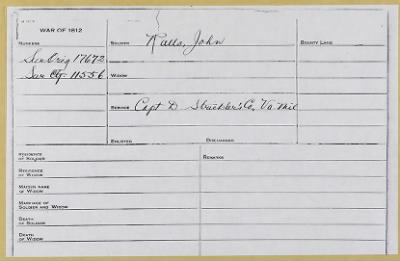 WAR OF 1812
NUMBERS
SOLDIER Ralls, John
BOUNTY LAND
Sur Orig 17672
Sur Ctf. 11556
WIDOW
SERVICE Capt D Strickler's Co, Va Mil
ENLISTED
DISCHARGED
RESIDENCE
OF SOLDIER
REMARKS
RESIDENCE
OF WIDOW
MAIDEN NAME
OF WIDOW
MARRIAGE OF
SOLDIER AND WIDOW
DEATH
OF SOLDIER
DEATH
OF WIDOW